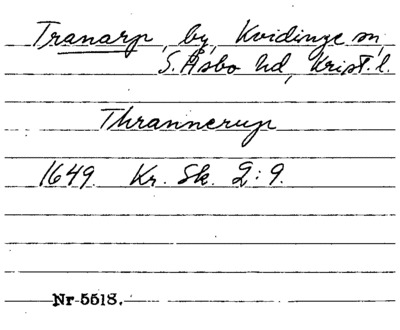 Tranarp, by, Kvidinge sn,
S. Åsbo hd, Krist. l.
Thrannerup
1649. Kr. Sk. 2:9.
Nr 5518.